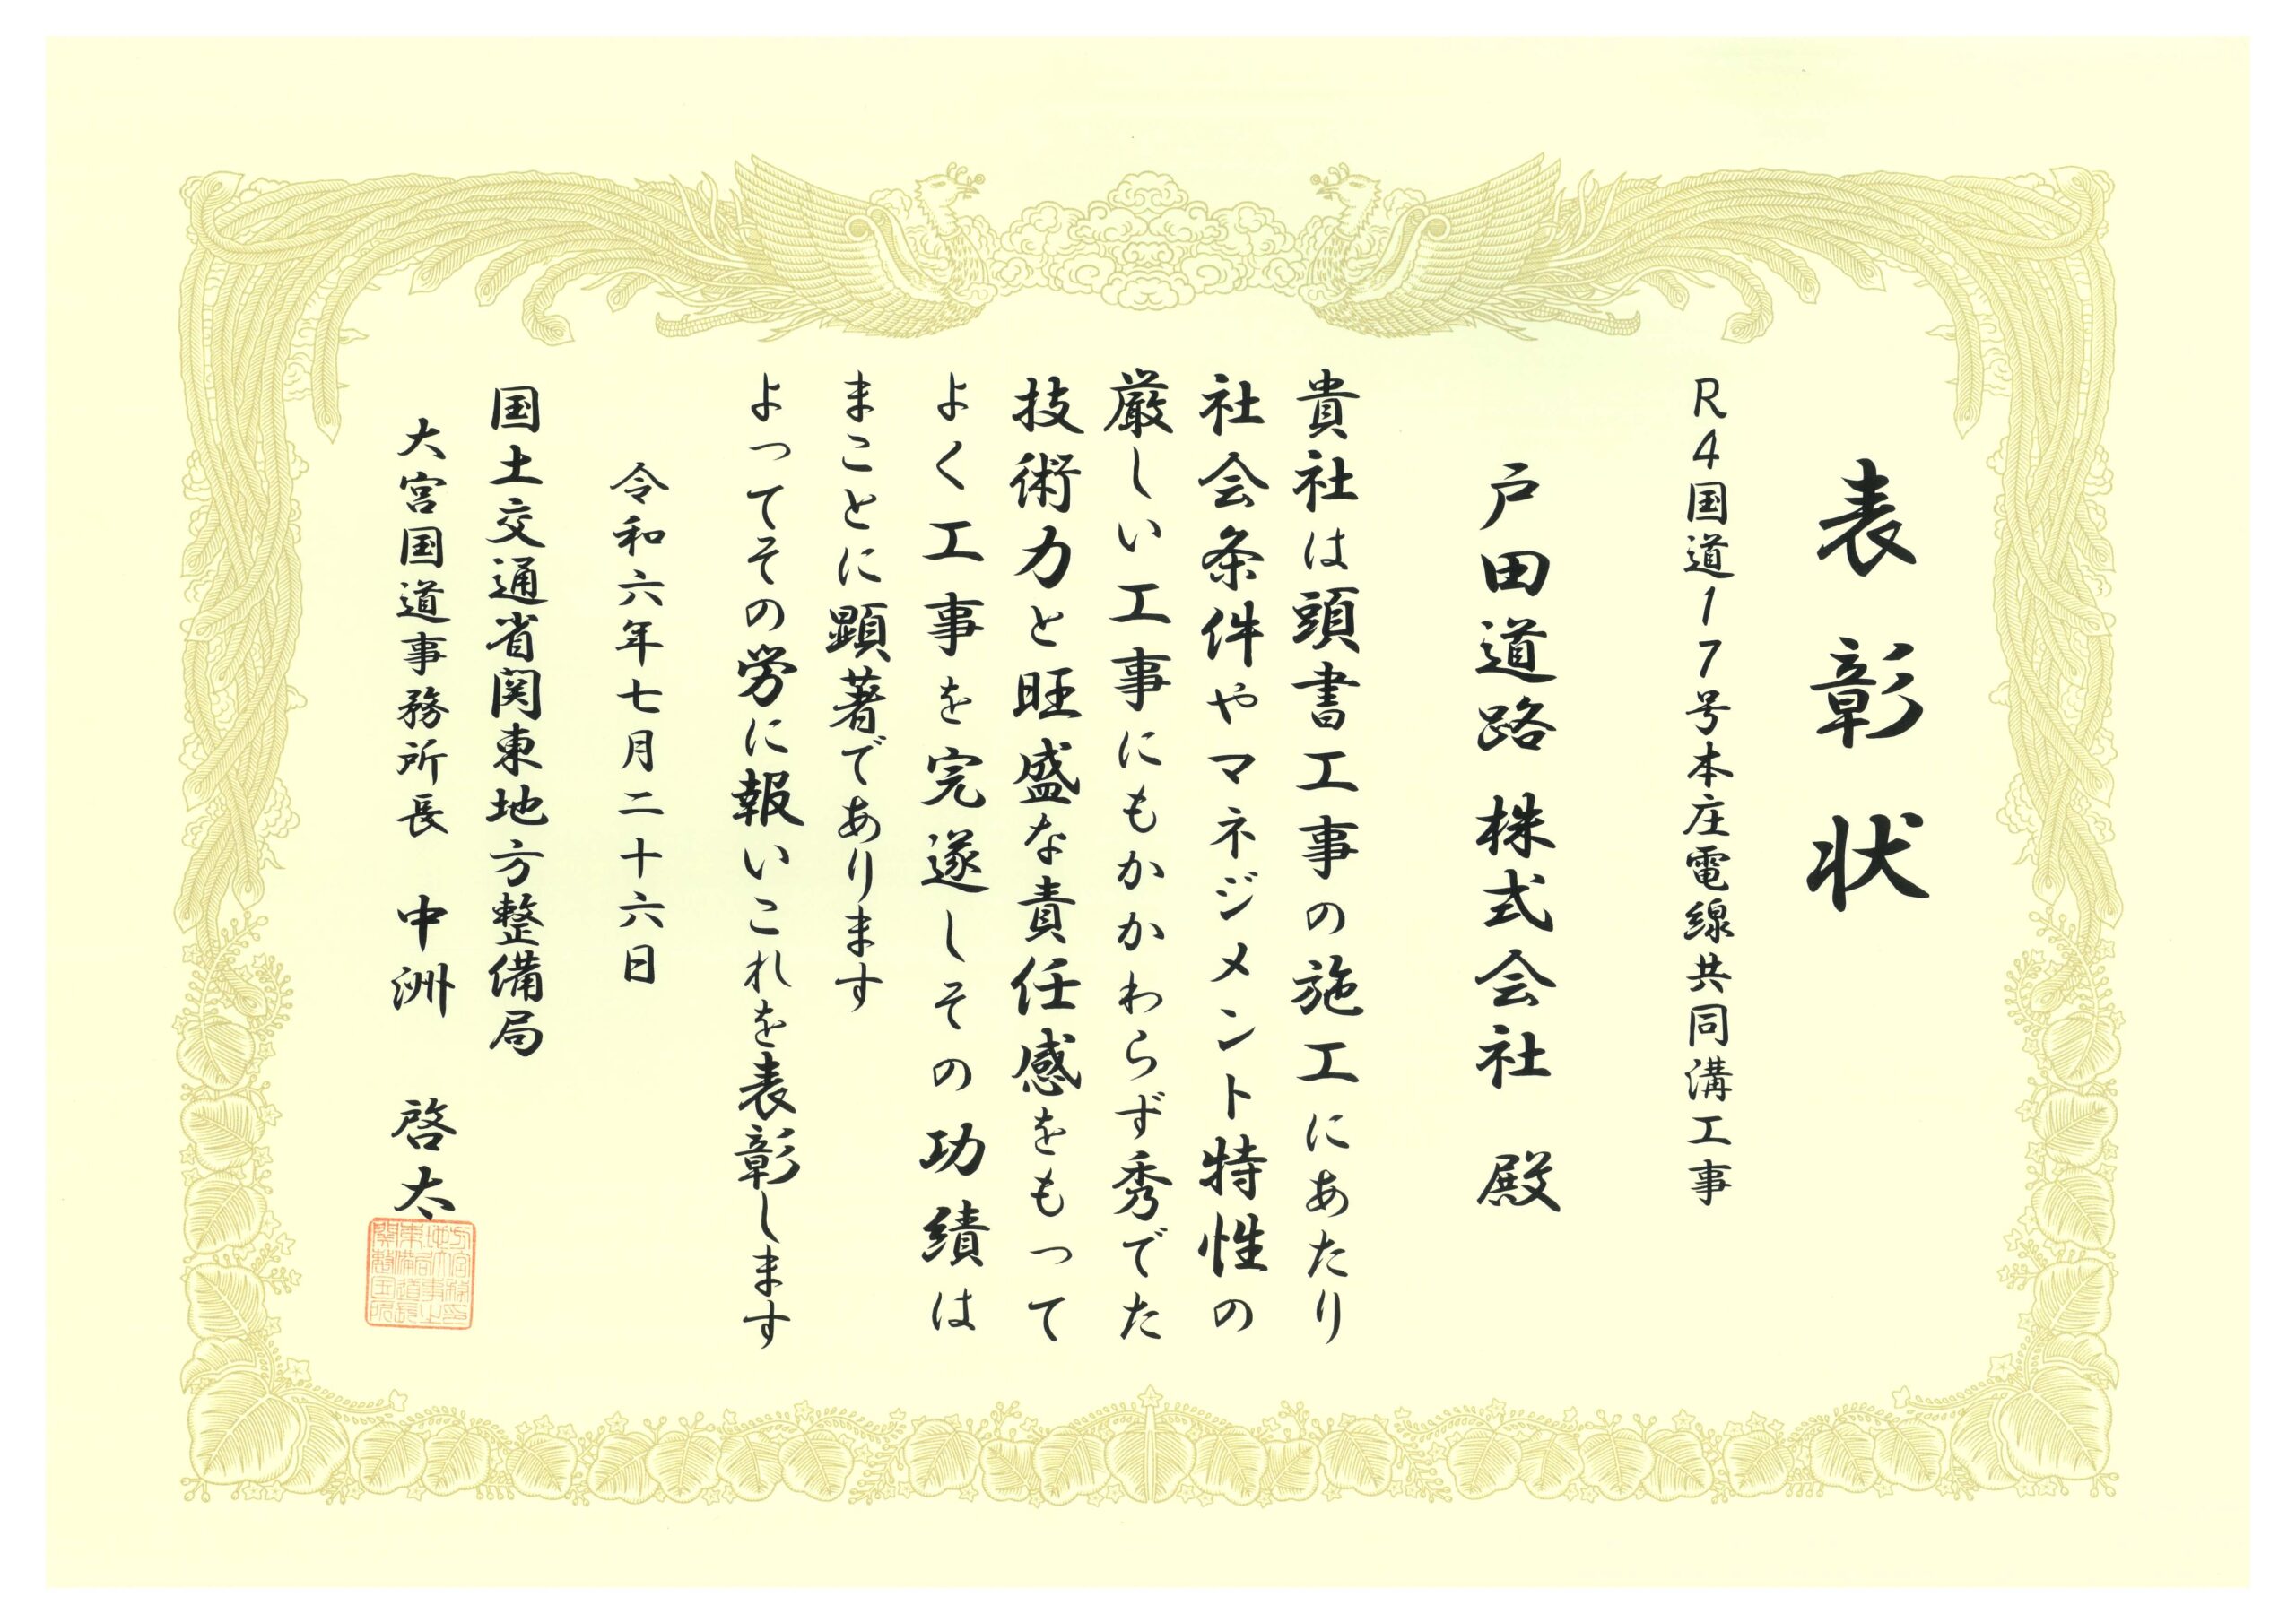 表彰状
R4国道17号本庄電線共同溝工事
戸田道路株式会社 殿
貴社は頭書工事の施工にあたり
社会条件やマネジメント特性の
厳しい工事にもかかわらず秀でた
技術力と旺盛な責任感をもって
よく工事を完遂しその功績は
まことに顕著であります
よってその労に報いこれを表彰します
令和六年七月二十六日
国土交通省関東地方整備局
大宮国道事務所長 中洲 啓太